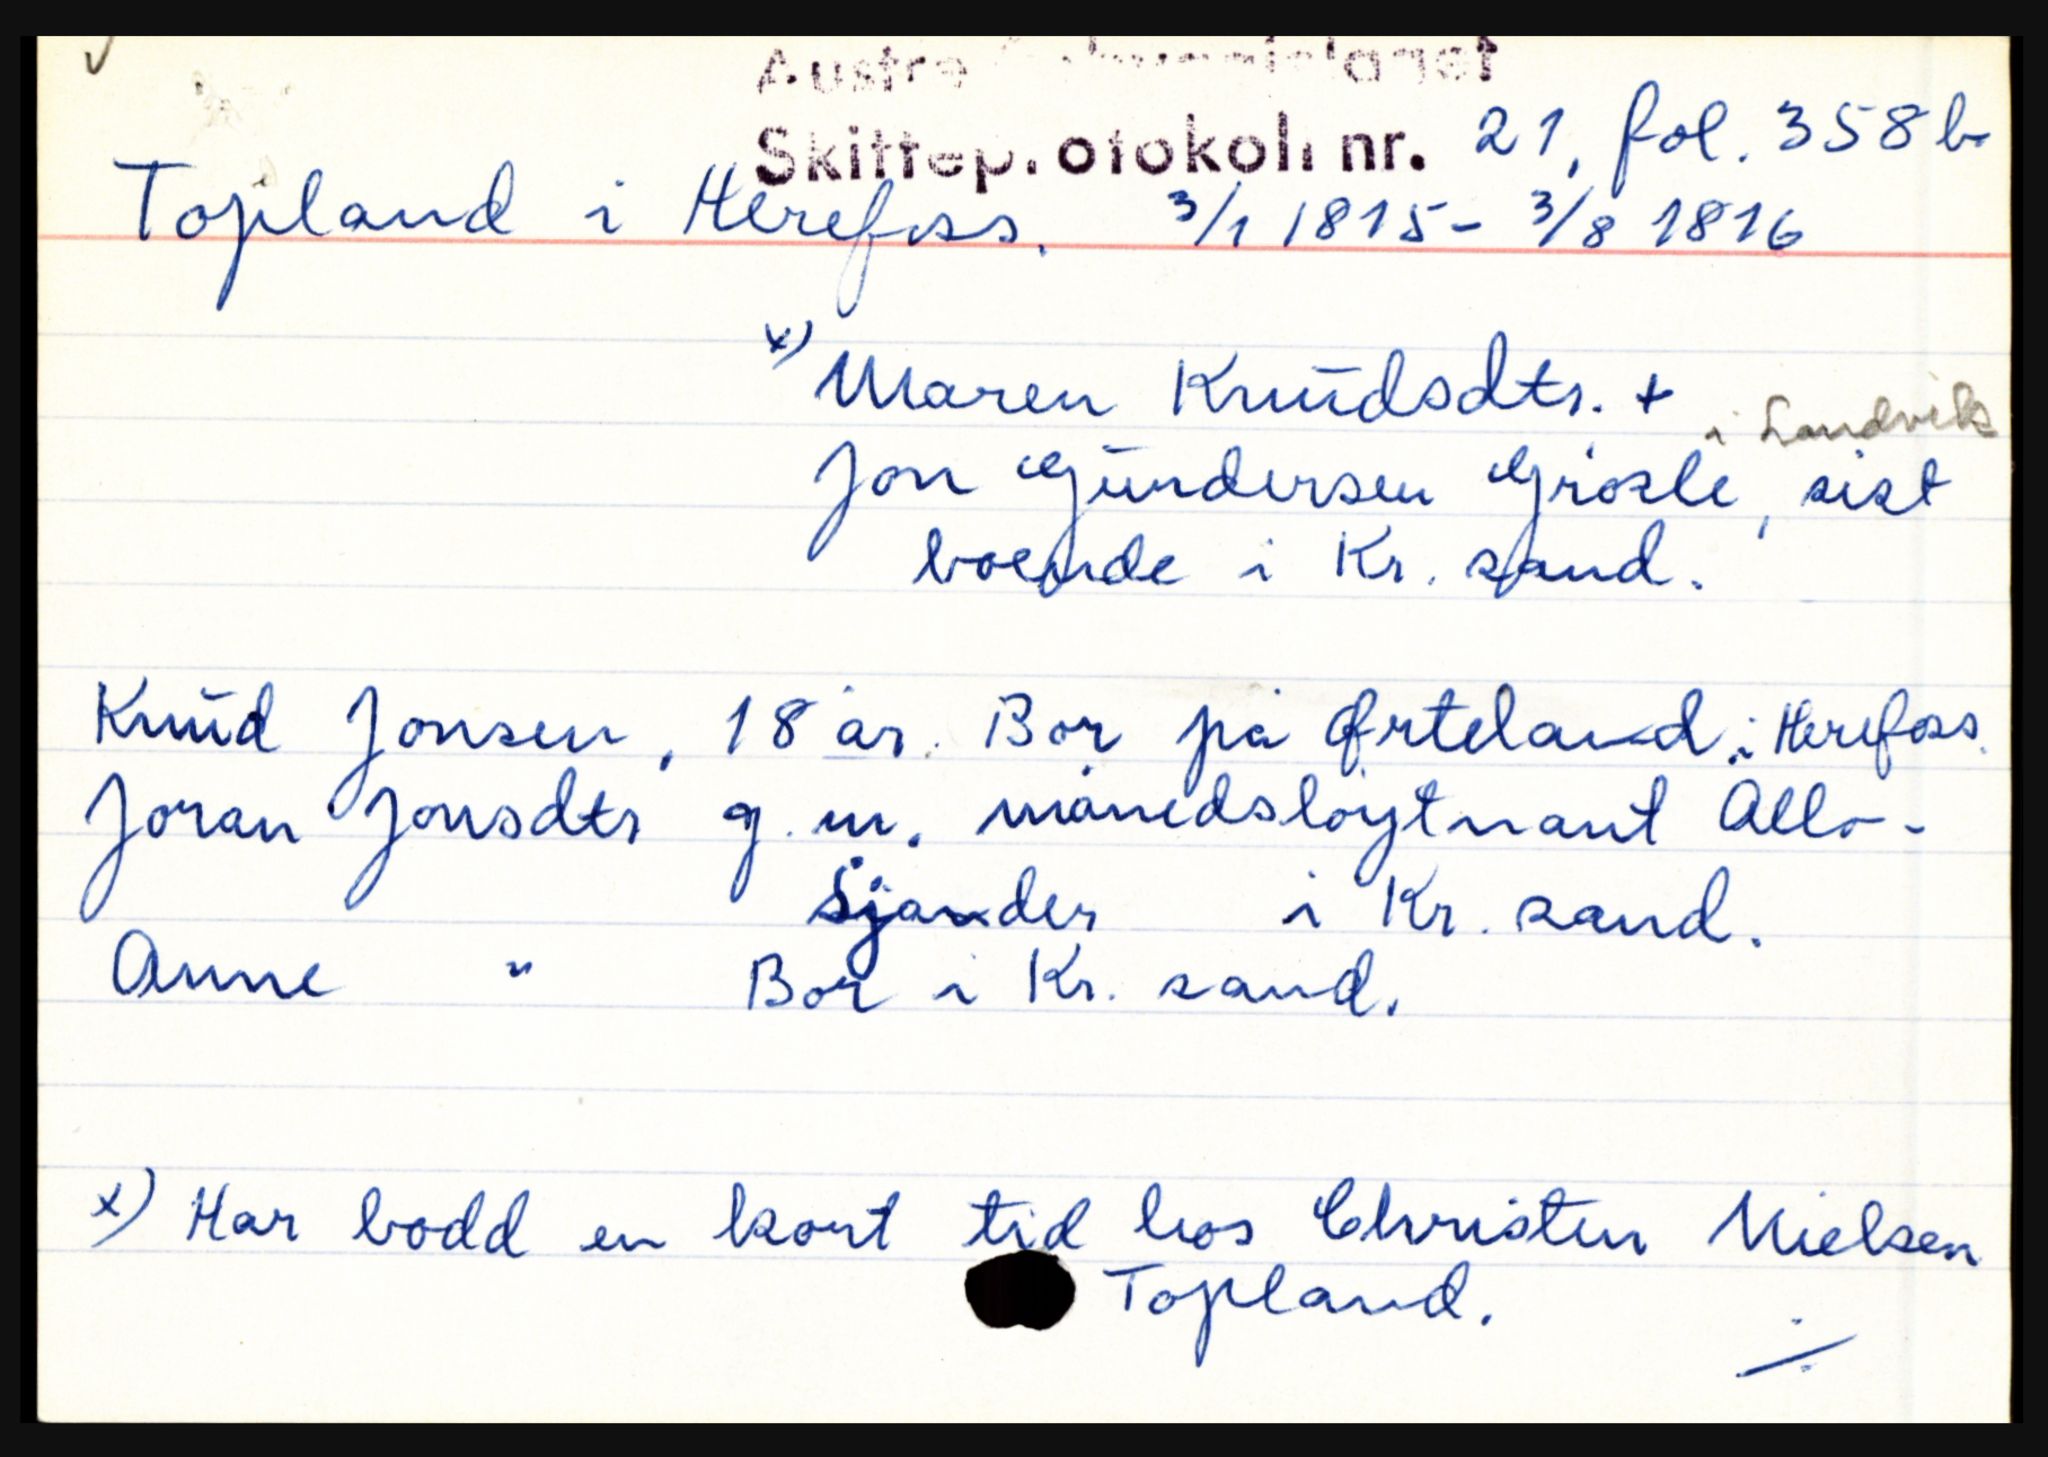 Austre
Skifteprotokoll nr. 21, fol. 358 b.
Topland i Herefoss. 3/1 1815 - 3/8 1816
x) Maren Knudsdtr. +
i Landvik
Jon Gundersen Grosle, sist
boende i Kr. sand.
Knud Jonsen, 18 år. Bor på Ørteland i Herefoss.
Joran Jonsdtr g. m. månedsløytnant Allo-
Sjander i Kr. sand.
Anne " Bor i Kr. sand.
x) Har bodd en kort tid hos Christen Nielsen
Topland.